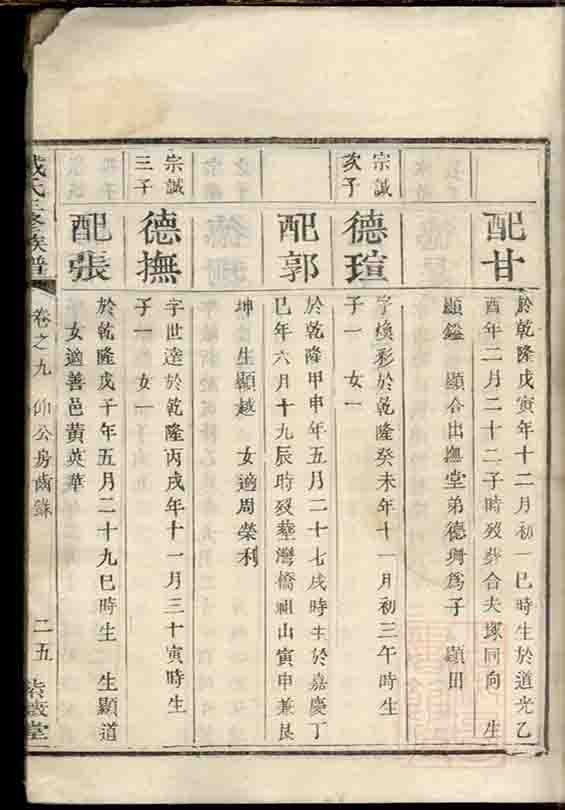 配甘
於乾隆戊寅年十二月初一巳時生於道光乙
酉年二月二十二子時歿葬合夫塚同向 生
顯鎰 顯合出撫堂弟德珃爲子 顯田
宗誠
次子
德瑄
字煥彩於乾隆癸未年十一月初三午時生
子一 女一
配郭
於乾隆甲申年五月二十七戌時生於嘉慶丁
巳年六月十九辰時歿塟灣橋祖山寅申兼艮
坤 生顯越 女適周榮利
宗誠
三子
德撫
字世達於乾隆丙戌年十一月三十寅時生
子一 女一
配張
於乾隆戊子年五月二十九巳時生 生顯道
女適善邑黃英華
氏三修族譜 卷之九 仰公房齒錄 二五 紫薇堂